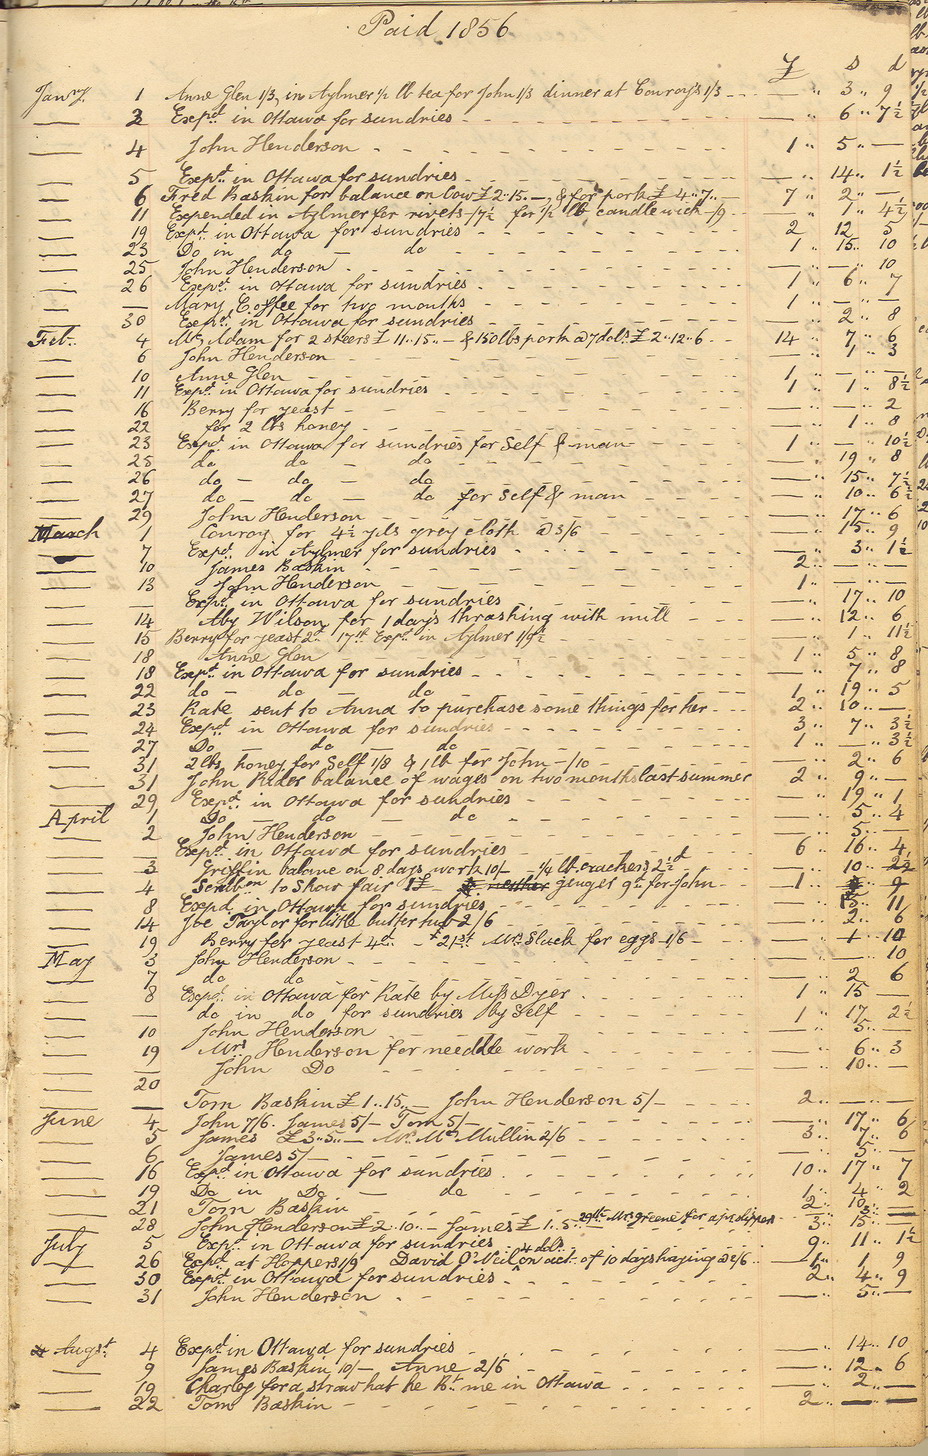 Paid 1856
£ s d
Janry. 1 Anne Glen 1/3, in Aylmer ½ lb tea for John 1/3 dinner at Conroys 1/3 — " 3 " 9
— 3 Expd. in Ottawa for sundries — " 6 " 7½
— 4 John Henderson 1 " 5 " —
— 5 Expd. in Ottawa for sundries — " 14 " 1½
— 6 Fred Baskin for balance on Cow £2"15"— & for pork £4"7"— 7 " 2 " —
— 11 Expended in Aylmer for rivets -/7½ for ½ lb candlewick -/9 — " 1 " 4½
— 19 Expd. in Ottawa for sundries 2 12 5
— 23 Do in do — do 1 " 15 " 10
— 25 John Henderson — " — 10
— 26 Expd. in Ottawa for sundries 1 " 6 " 7
— — Mary Coffee for two months 1 " — " —
— 30 Expd. in Ottawa for sundries — " 2 " 8
Feb. 4 Mr Adam for 2 steers £11"15"— & 150lbs pork @ 7dols. £2"12"6 14 " 7 " 6
— 6 John Henderson — " 1 " 3
— 10 Anne Glen 1 " — " —
— 11 Expd. in Ottawa for sundries 1 " 1 " 8½
— 16 Berry for yeast — " — " 2
— 22 for 2 lbs honey — " 1 " 8
— 23 Expd. in Ottawa for sundries for Self & man 1 " — " 10½
— 25 do do — do — " 19 " 8
— 26 do — do — do — " 15 " 7½
— 27 do — do — do for Self & man — " 10 " 6½
— 29 John Henderson — " 17 " 6
March 1 Conroy for 4½ yds grey cloth @ 3/6 — " 15 " 9
— 7 Expd. in Aylmer for sundries — " 3 " 1½
— 10 James Baskin 2 " — " —
— 13 John Henderson 1 " — " —
— — Expd. in Ottawa for sundries — " 17 " 10
— 14 Aby Wilson for 1 days thrashing with mill — " 12 " 6
— 15 Berry for yeast 2d. 17th Expd. in Aylmer 1/9½ — " 1 " 11½
— 18 Anne Glen 1 " 5 " 8
— 18 Expd. in Ottawa for sundries — " 7 " 8
— 22 do — do — do 1 " 19 " 5
— 23 Kate sent to Anna to purchase some things for her 2 " 10 " —
— 24 Expd. in Ottawa for sundries 3 " 7 " 3½
— 27 Do — do — do 1 " — " 3½
— 31 2lbs honey for Self 1/8 & 1 lb for John -/10 — " 2 " 6
— 31 John Rider balance of wages on two months last summer 2 " 9 " —
— 29 Expd. in Ottawa for sundries — " 19 " 1
April 1 Do — do — do — " 5 " 4
— 2 John Henderson — " 5 " —
— Expd. in Ottawa for sundries 6 " 16 " 4
— 3 Griffin balance on 8 days work 10/- ¼ lb. crackers 2½d — " 10 " 2½
— 4 to Show fair ginger 9d. for John 1 " 9
— 8 Expd. in Ottawa for sundries — " 15 " 11
— 14 Joe Taylor for little butter tub 2/6 — " 2 " 6
— 19 Berry for yeast 4d. — 21st Mrs Sluck for eggs 1/6 — " 1 " 10
May 3 John Henderson — " — 10
— 7 do do — " 2 " 6
— 8 Expd. in Ottawa for Kate by Miss Dyer 1 " 15 —
— — do in do for sundries by Self 1 " 17 " 2½
— 10 John Henderson — " 5 " —
— 19 Mrs Henderson for needdle work — " 6 " 3
— — John Do — " 10 " —
— 20
— — Tom Baskin £1"15"— John Henderson 5/- 2 " — " —
June 4 John 7/6. James 5/- Tom 5/- — " 17 " 6
— 5 James £3"5"— Mr. McMullin 2/6 3 " 7 " 6
— 6 James 5/- — " 5 " —
— 16 Expd. in Ottawa for sundries 10 " 17 " 7
— 19 Do in Do — do 1 " 4 " 2
— 21 Tom Baskin 2 " 10 " —
— 28 John Henderson £2"10"— James £1"5" 29th Mrs Greene for a pr slippers 3 " 15 " —
July 5 Expd. in Ottawa for sundries 9 " 11 " 1½
— 26 Expd. at Hoppers 1/9 David O'Neil 4 dols. on act. of 10 days haying @ 2/6 1 " 1 " 9
— 30 Expd. in Ottawa for sundries 2 " 4 " 9
— 31 John Henderson — " 5 " —
Augst. 4 Expd. in Ottawa for sundries — " 14 " 10
— 9 James Baskin 10/- Anne 2/6 — " 12 " 6
— 19 Charley for a straw hat he Bt. me in Ottawa — " 2 " —
— 22 Tom Baskin 2 " — " —